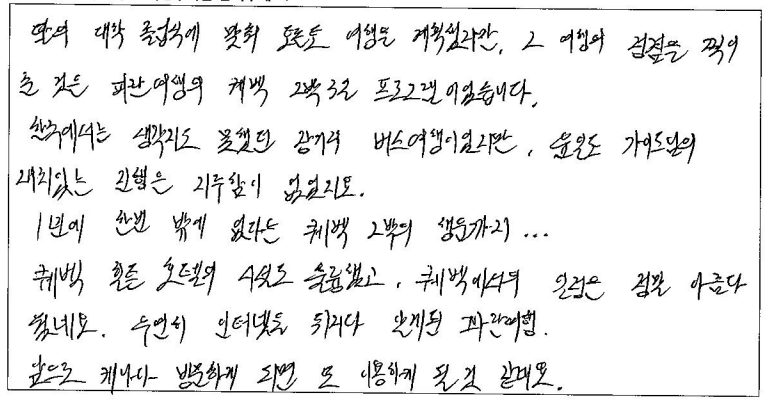 딸의 대학 졸업식에 맞춰 토론토 여행을 계획했지만, 그 여행의 정점을 찍어
준 것은 파란여행의 퀘벡 2박3일 프로그램이었습니다.
한국에서는 생각지도 못했던 장거리 버스여행이었지만, 윤온도 가이드님의
재치있는 진행은 지루함이 없었지요.
1년에 한번 밖에 없다는 퀘벡 2박의 행운까지...
퀘벡 힐튼 호텔의 시설도 훌륭했고, 퀘벡에서의 일정은 정말 아름다
웠네요. 우연히 인터넷을 뒤지다 알게된 파란여행.
앞으로 캐나다 방문하게 되면 또 이용하게 될 것 같네요.